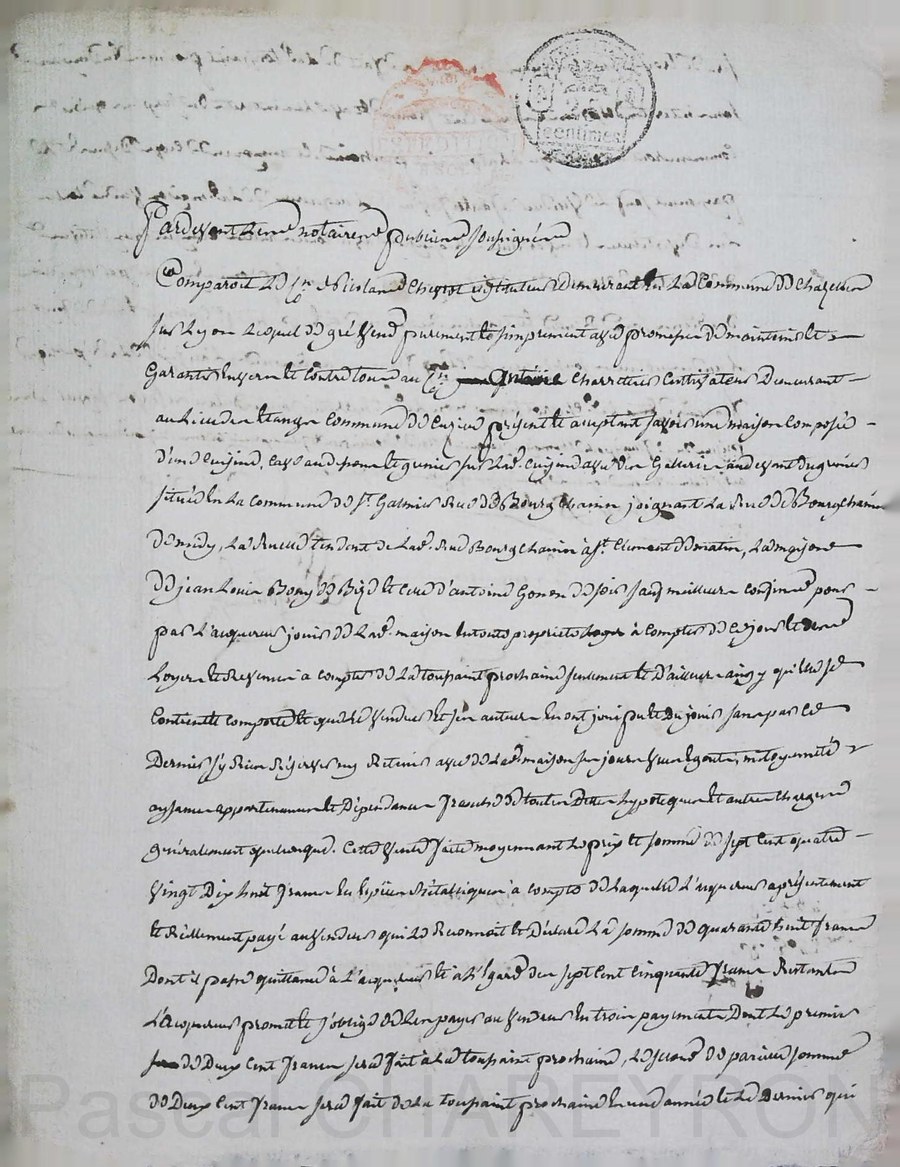 EXPEDITION
25
centimes
Pardevant Les notaires publics soussignés
Comparoit Le Cn Nicolas Cheyrot instituteur demeurant en La Commune de Chazelles
sur Lyon Lequel de gré Vend purement et simplement avec promesse de maintenir et
Garantir Envers et contre tous au Cn Antoine Charretier Cultivateur Demeurant
au Lieu de L'étang Commune de présent et aceptant savoir une maison Composée
d'une Cuisine, Cave au dessous et grenier sur Lad. Cuisine avec une Gallerie au devant du grenier
située En La Commune de St. Galmier Rue de Bourgchanin joignant La Rue de Bourgchanin
de midy, La Ruelle tendant de Lad. Rue Bourgchanin à St. Clement de matin, La maison
de jean Louis Bony de Bize et celle d'antoine Gonon de soir sauf meilleurs confins pour
par L'acquereur jouir de Lad. maison En toute propriété à Compter de Ce jour et des
Loyers et Revenus à compter de La toussaint prochaine seulement et D'ailleurs ainsy qu'elle se
Contient et comporte et que Le Vendeur et ses auteurs En ont joui pu et Du jouir sans par Ce
Dernier s'y Rien Réserver ny Retenir avec de Lad. maison ses jours Vues Egouts, mitoyenneté
aysances appartenances et Dépendances franche de toutes Dettes hypoteques et autres charges
généralement quelconques. Cette Vente faite moyennant Le prix et somme de sept Cent quatre
Vingt Dix huit francs En Espèces métalliques à compte de Laquelle L'acquereur a présentement
et Réellement payé au Vendeur qui Le Reconnoit et Déclare La somme de quarante huit francs
Dont il passe quittance à L'acquereur et à L'égard des sept Cent Cinquante francs Restants
L'acquereur promet et s'oblige de Les payer au Vendeur En trois payements, Dont Le premier
de Deux Cent francs sera fait à La toussaint prochaine, Le second de pareille somme
de Deux Cent francs sera fait de La toussaint prochaine En une année et Le Dernier qui
Pascal CHAREYRON